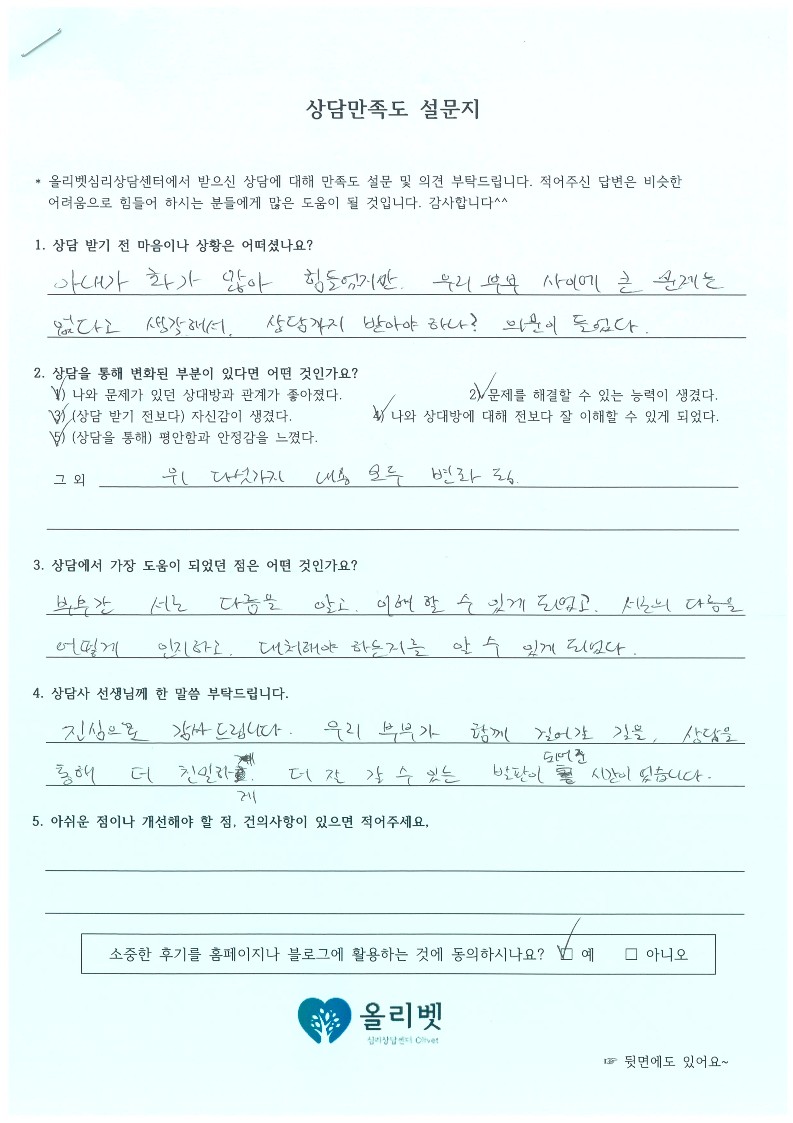 상담만족도 설문지
* 올리벳심리상담센터에서 받으신 상담에 대해 만족도 설문 및 의견 부탁드립니다. 적어주신 답변은 비슷한
어려움으로 힘들어 하시는 분들에게 많은 도움이 될 것입니다. 감사합니다^^
1. 상담 받기 전 마음이나 상황은 어떠셨나요?
아내가 화가 많아 힘들었지만. 우리 부부 사이에 큰 문제는
없다고 생각해서. 상담까지 받아야 하나? 의문이 들었다.
2. 상담을 통해 변화된 부분이 있다면 어떤 것인가요?
1) 나와 문제가 있던 상대방과 관계가 좋아졌다. 2) 문제를 해결할 수 있는 능력이 생겼다.
3) (상담 받기 전보다) 자신감이 생겼다. 4) 나와 상대방에 대해 전보다 잘 이해할 수 있게 되었다.
5) (상담을 통해) 평안함과 안정감을 느꼈다.
그 외 위 다섯가지 내용 모두 변화 됨.
3. 상담에서 가장 도움이 되었던 점은 어떤 것인가요?
부부간 서로 다름을 알고. 이해 할 수 있게 되었고. 서로의 다름을
어떻게 인지하고. 대처해야 하는지를 알 수 있게 되었다.
4. 상담사 선생님께 한 말씀 부탁드립니다.
진심으로 감사드립니다. 우리 부부가 함께 걸어갈 길을, 상담을
통해 더 친밀하게. 더 잘 갈 수 있는 발판이 되어준 시간이 었습니다.
5. 아쉬운 점이나 개선해야 할 점, 건의사항이 있으면 적어주세요,
소중한 후기를 홈페이지나 블로그에 활용하는 것에 동의하시나요? ☑ 예 □ 아니오
올리벳
심리상담센터 Olivet
☞ 뒷면에도 있어요~